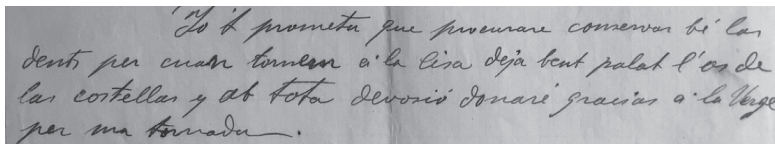 Jo't prometu que procurare conservar bé las
dents per cuan tornem á la lisa deja bent palat l'os de
las costellas y ab tota devosió donaré gracias á la Verge
per ma tornada.